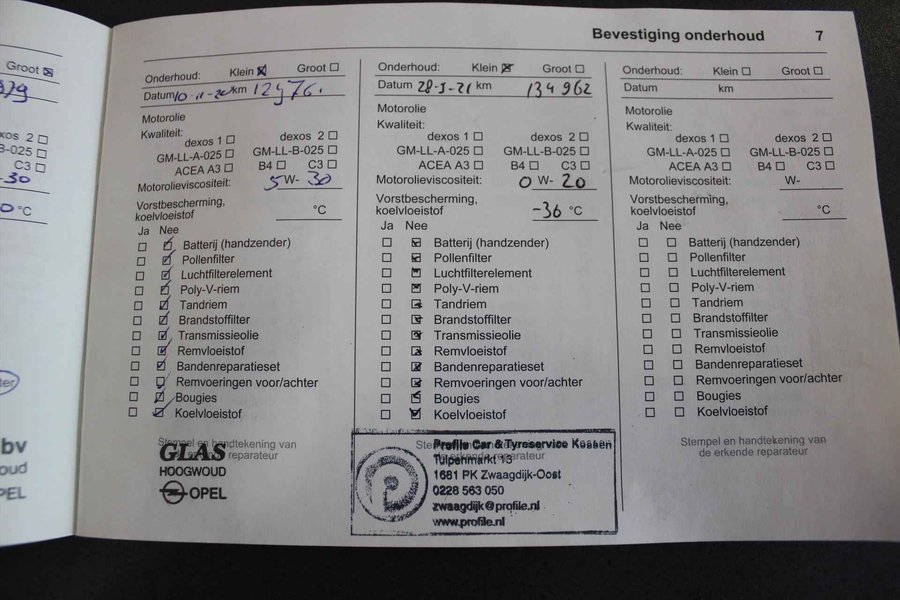 Bevestiging onderhoud 7
Groot ☒
dexos 2 ☐
B-025 ☐
C3 ☐
-30
°C
bv
oud
PEL
Onderhoud: Klein ☒ Groot ☐
Datum 10-11-20 km
Motorolie
Kwaliteit:
dexos 1 ☐ dexos 2 ☐
GM-LL-A-025 ☐ GM-LL-B-025 ☐
ACEA A3 ☐ B4 ☐ C3 ☐
Motorolieviscositeit: 5 W- 30
Vorstbescherming,
koelvloeistof °C
Ja Nee
☐ ☑ Batterij (handzender)
☐ ☑ Pollenfilter
☐ ☑ Luchtfilterelement
☐ ☑ Poly-V-riem
☐ ☑ Tandriem
☐ ☑ Brandstoffilter
☐ ☑ Transmissieolie
☐ ☑ Remvloeistof
☐ ☑ Bandenreparatieset
☐ ☑ Remvoeringen voor/achter
☐ ☑ Bougies
☐ ☑ Koelvloeistof
Stempel en handtekening van
de erkende reparateur
GLAS
HOOGWOUD
OPEL
Onderhoud: Klein ☒ Groot ☐
Datum 28-5-21 km 134 962
Motorolie
Kwaliteit:
dexos 1 ☐ dexos 2 ☐
GM-LL-A-025 ☐ GM-LL-B-025 ☐
ACEA A3 ☐ B4 ☐ C3 ☐
Motorolieviscositeit: 0 W- 20
Vorstbescherming,
koelvloeistof -36 °C
Ja Nee
☐ ☑ Batterij (handzender)
☐ ☑ Pollenfilter
☐ ☑ Luchtfilterelement
☐ ☑ Poly-V-riem
☐ ☑ Tandriem
☐ ☑ Brandstoffilter
☐ ☑ Transmissieolie
☐ ☑ Remvloeistof
☐ ☑ Bandenreparatieset
☐ ☑ Remvoeringen voor/achter
☐ ☑ Bougies
☐ ☑ Koelvloeistof
Profile Car & Tyreservice Kossen
Tulpenmarkt 13
1681 PK Zwaagdijk-Oost
0228 563 050
zwaagdijk@profile.nl
www.profile.nl
Onderhoud: Klein ☐ Groot ☐
Datum km
Motorolie
Kwaliteit:
dexos 1 ☐ dexos 2 ☐
GM-LL-A-025 ☐ GM-LL-B-025 ☐
ACEA A3 ☐ B4 ☐ C3 ☐
Motorolieviscositeit: W-
Vorstbescherming,
koelvloeistof °C
Ja Nee
☐ ☐ Batterij (handzender)
☐ ☐ Pollenfilter
☐ ☐ Luchtfilterelement
☐ ☐ Poly-V-riem
☐ ☐ Tandriem
☐ ☐ Brandstoffilter
☐ ☐ Transmissieolie
☐ ☐ Remvloeistof
☐ ☐ Bandenreparatieset
☐ ☐ Remvoeringen voor/achter
☐ ☐ Bougies
☐ ☐ Koelvloeistof
Stempel en handtekening van
de erkende reparateur